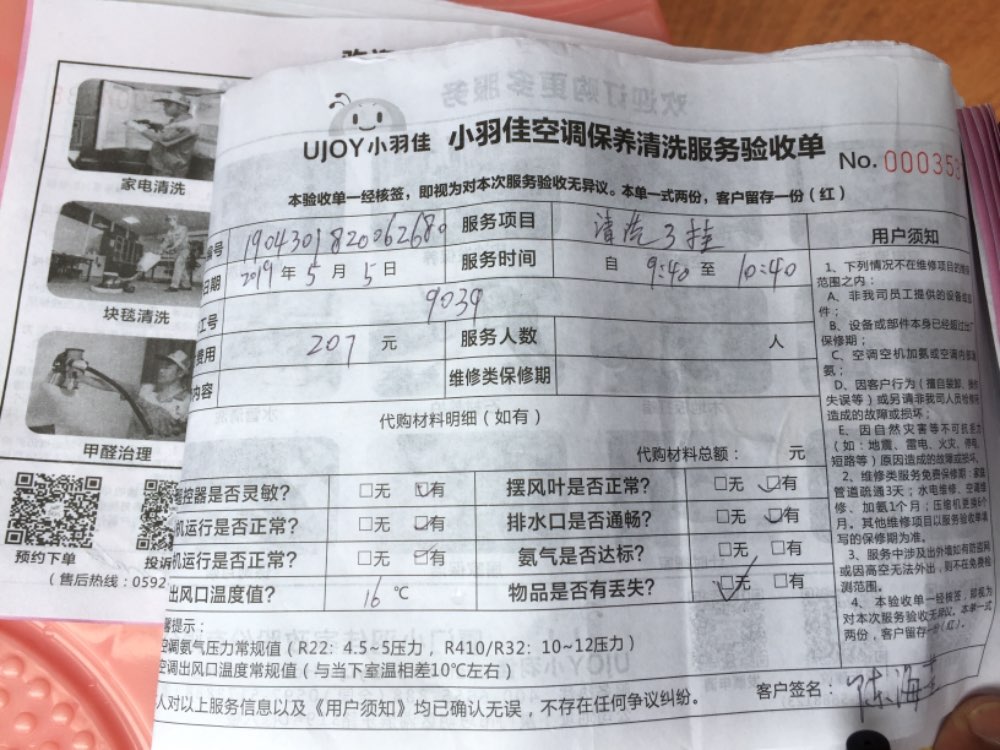 家电清洗
块毯清洗
甲醛治理
预约下单
投诉
（售后热线：0592
UJOY小羽佳 小羽佳空调保养清洗服务验收单
No. 000353
本验收单一经核签，即视为对本次服务验收无异议。本单一式两份，客户留存一份（红）
编号 190430182006268 服务项目 清洗3挂
日期 2019年5月5日 服务时间 自 9:40 至 10:40
工号 9039
费用 207 元 服务人数 人
内容 维修类保修期
代购材料明细（如有）
代购材料总额： 元
遥控器是否灵敏？ □无 □有 摆风叶是否正常？ □无 □有
机运行是否正常？ □无 □有 排水口是否通畅？ □无 □有
机运行是否正常？ □无 □有 氨气是否达标？ □无 □有
出风口温度值？ 16 ℃ 物品是否有丢失？ □无 □有
提示：
空调氨气压力常规值（R22：4.5~5压力，R410/R32：10~12压力）
空调出风口温度常规值（与当下室温相差10℃左右）
人对以上服务信息以及《用户须知》均已确认无误，不存在任何争议纠纷。
客户签名： 陈海
用户须知
1、下列情况不在维修项目的
范围之内：
A、非我司员工提供的设备或
件；
B、设备或部件本身已经超过
保修期；
C、空调空机加氨或空调内部
氨；
D、因客户行为（擅自装卸、
失误等）或另请非我司人员检修
造成的故障或损坏；
E、因自然灾害等不可抗
（如：地震、雷电、火灾、停电、
短路等）原因造成的故障或损坏。
2、维修类服务免费保修期：家庭
管道疏通3天；水电维修、空调维
修、加氨1个月；压缩机更换6个
月。其他维修项目以服务验收单填
写的保修期为准。
3、服务中涉及出外墙如有防盗网
或因高空无法外出，则不在免费检
测范围。
4、本验收单一经核签，即视为
对本次服务验收无异议。本单一式
两份，客户留存一份（红）。